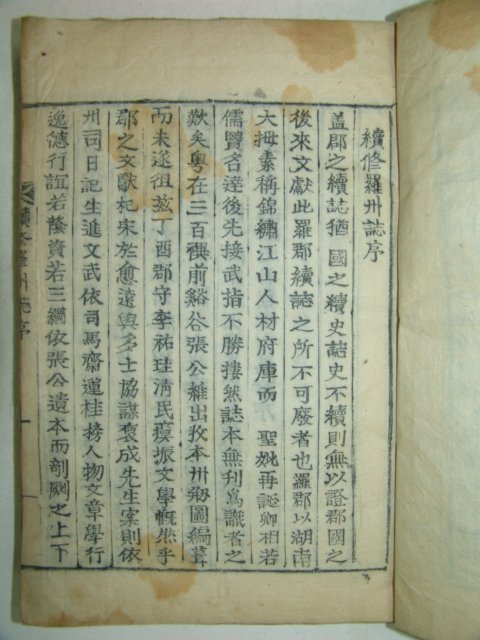 續修羅州誌序
盖郡之續誌猶 國之續史誌史不續則無以證郡國之
後來文獻此羅郡續誌之所不可廢者也羅郡以湖南
大拇素稱錦繡江山人材府庫而 聖妣再誕卿相若
儒賢名達後先接武指不勝摟然誌本無刋爲識者之
歎矣粤在三百禩前谿谷張公維出牧本州剏圖編葺
而未遂徂玆丁酉郡守李祐珪淸民瘼振文學慨然乎
郡之文獻杞宋於愈遠與多士協謀裒成先生案則依
州司日記生進文武依司馬齋蓮桂榜人物文章學行
逸德行誼若蔭資若三綱依張公遺本而剞劂之上下
續修羅州誌序
一